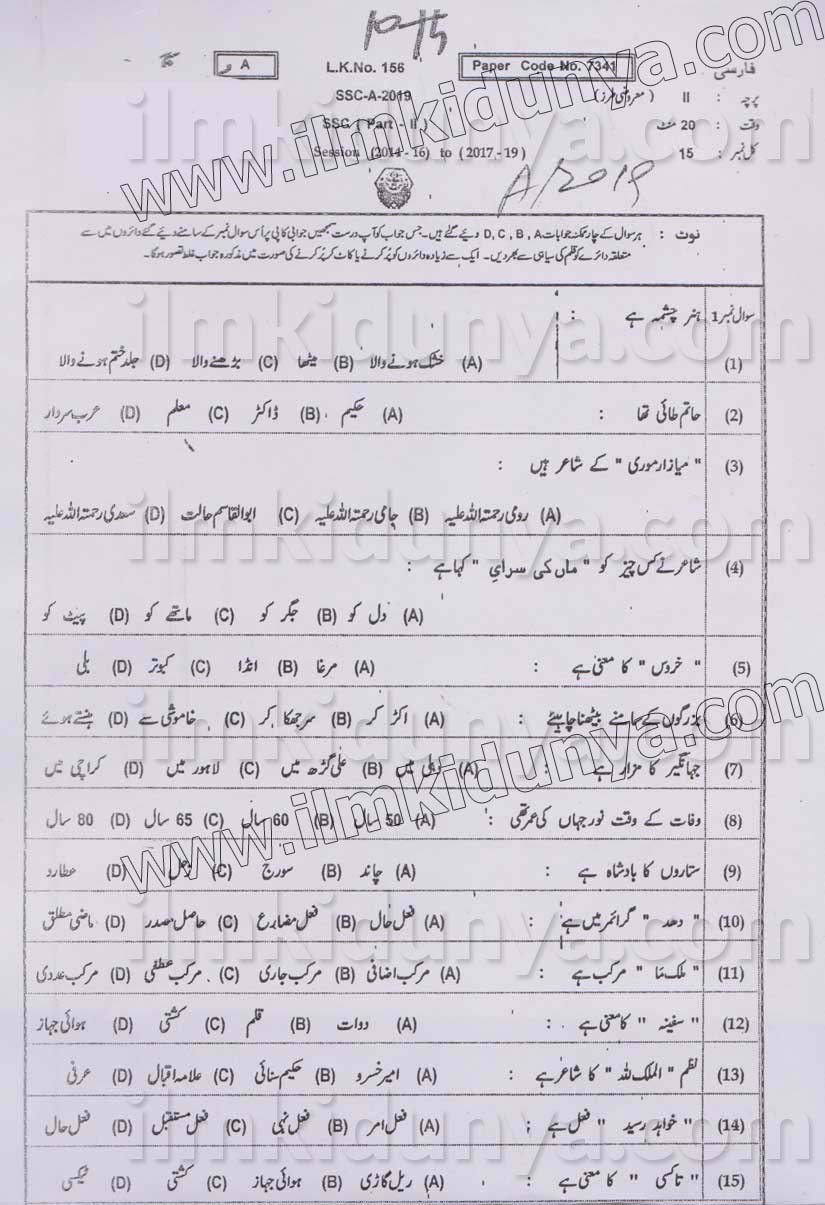 10th
A
L.K.No. 156
Paper Code No. 7341
فارسی
SSC-A-2019
پرچہ : II (معروضی طرز)
SSC (Part - II)
وقت : 20 منٹ
Session (2014 - 16) to (2017 - 19)
کل نمبر : 15
A/2019
نوٹ : ہر سوال کے چار ممکنہ جوابات D, C, B, A دیئے گئے ہیں۔ جس جواب کو آپ درست سمجھیں جوابی کاپی پر اُس سوال نمبر کے سامنے دیئے گئے دائروں میں سے
متعلقہ دائرے کو قلم کی سیاہی سے بھر دیں۔ ایک سے زیادہ دائروں کو پُر کرنے یا کاٹ کر پُر کرنے کی صورت میں مذکورہ جواب غلط تصور ہوگا۔
سوال نمبر 1 ہنر چشمہ ہے :
(1) (A) خشک ہونے والا (B) میٹھا (C) بڑھنے والا (D) جلد ختم ہونے والا
(2) حاتم طائی تھا : (A) حکیم (B) ڈاکٹر (C) معلم (D) عرب سردار
(3) " میازار موری " کے شاعر ہیں :
(A) رومی رحمتہ اللہ علیہ (B) جامی رحمتہ اللہ علیہ (C) ابوالقاسم حالت (D) سعدی رحمتہ اللہ علیہ
(4) شاعر نے کس چیز کو " ماں کی سرای " کہا ہے :
(A) دل کو (B) جگر کو (C) ماتھے کو (D) پیٹ کو
(5) " خروس " کا معنی ہے : (A) مرغا (B) انڈا (C) کبوتر (D) بلی
(6) بزرگوں کے سامنے بیٹھنا چاہیئے : (A) اکڑ کر (B) سر جھکا کر (C) خاموشی سے (D) ہنستے ہوئے
(7) جہانگیر کا مزار ہے : (A) دہلی میں (B) علی گڑھ میں (C) لاہور میں (D) کراچی میں
(8) وفات کے وقت نور جہاں کی عمر تھی : (A) 50 سال (B) 60 سال (C) 65 سال (D) 80 سال
(9) ستاروں کا بادشاہ ہے : (A) چاند (B) سورج (C) زحل (D) عطارد
(10) " دھد " گرائمر میں ہے : (A) فعل حال (B) فعل مضارع (C) حاصل مصدر (D) ماضی مطلق
(11) " ملک ما " مرکب ہے : (A) مرکب اضافی (B) مرکب جاری (C) مرکب عطفی (D) مرکب عددی
(12) " سفینہ " کا معنی ہے : (A) دوات (B) قلم (C) کشتی (D) ہوائی جہاز
(13) نظم " الملک للہ " کا شاعر ہے : (A) امیر خسرو (B) حکیم سنائی (C) علامہ اقبال (D) عرفی
(14) " خواہد رسید " فعل ہے : (A) فعل امر (B) فعل نہی (C) فعل مستقبل (D) فعل حال
(15) " تاکسی " کا معنی ہے : (A) ریل گاڑی (B) ہوائی جہاز (C) کشتی (D) ٹیکسی
www.ilmkidunya.com
www.ilmkidunya.com
ilmkidunya.com
ilmkidunya.com
ilmkidunya.com
ilmkidunya.com
ilmkidunya.com
ilmkidunya.com